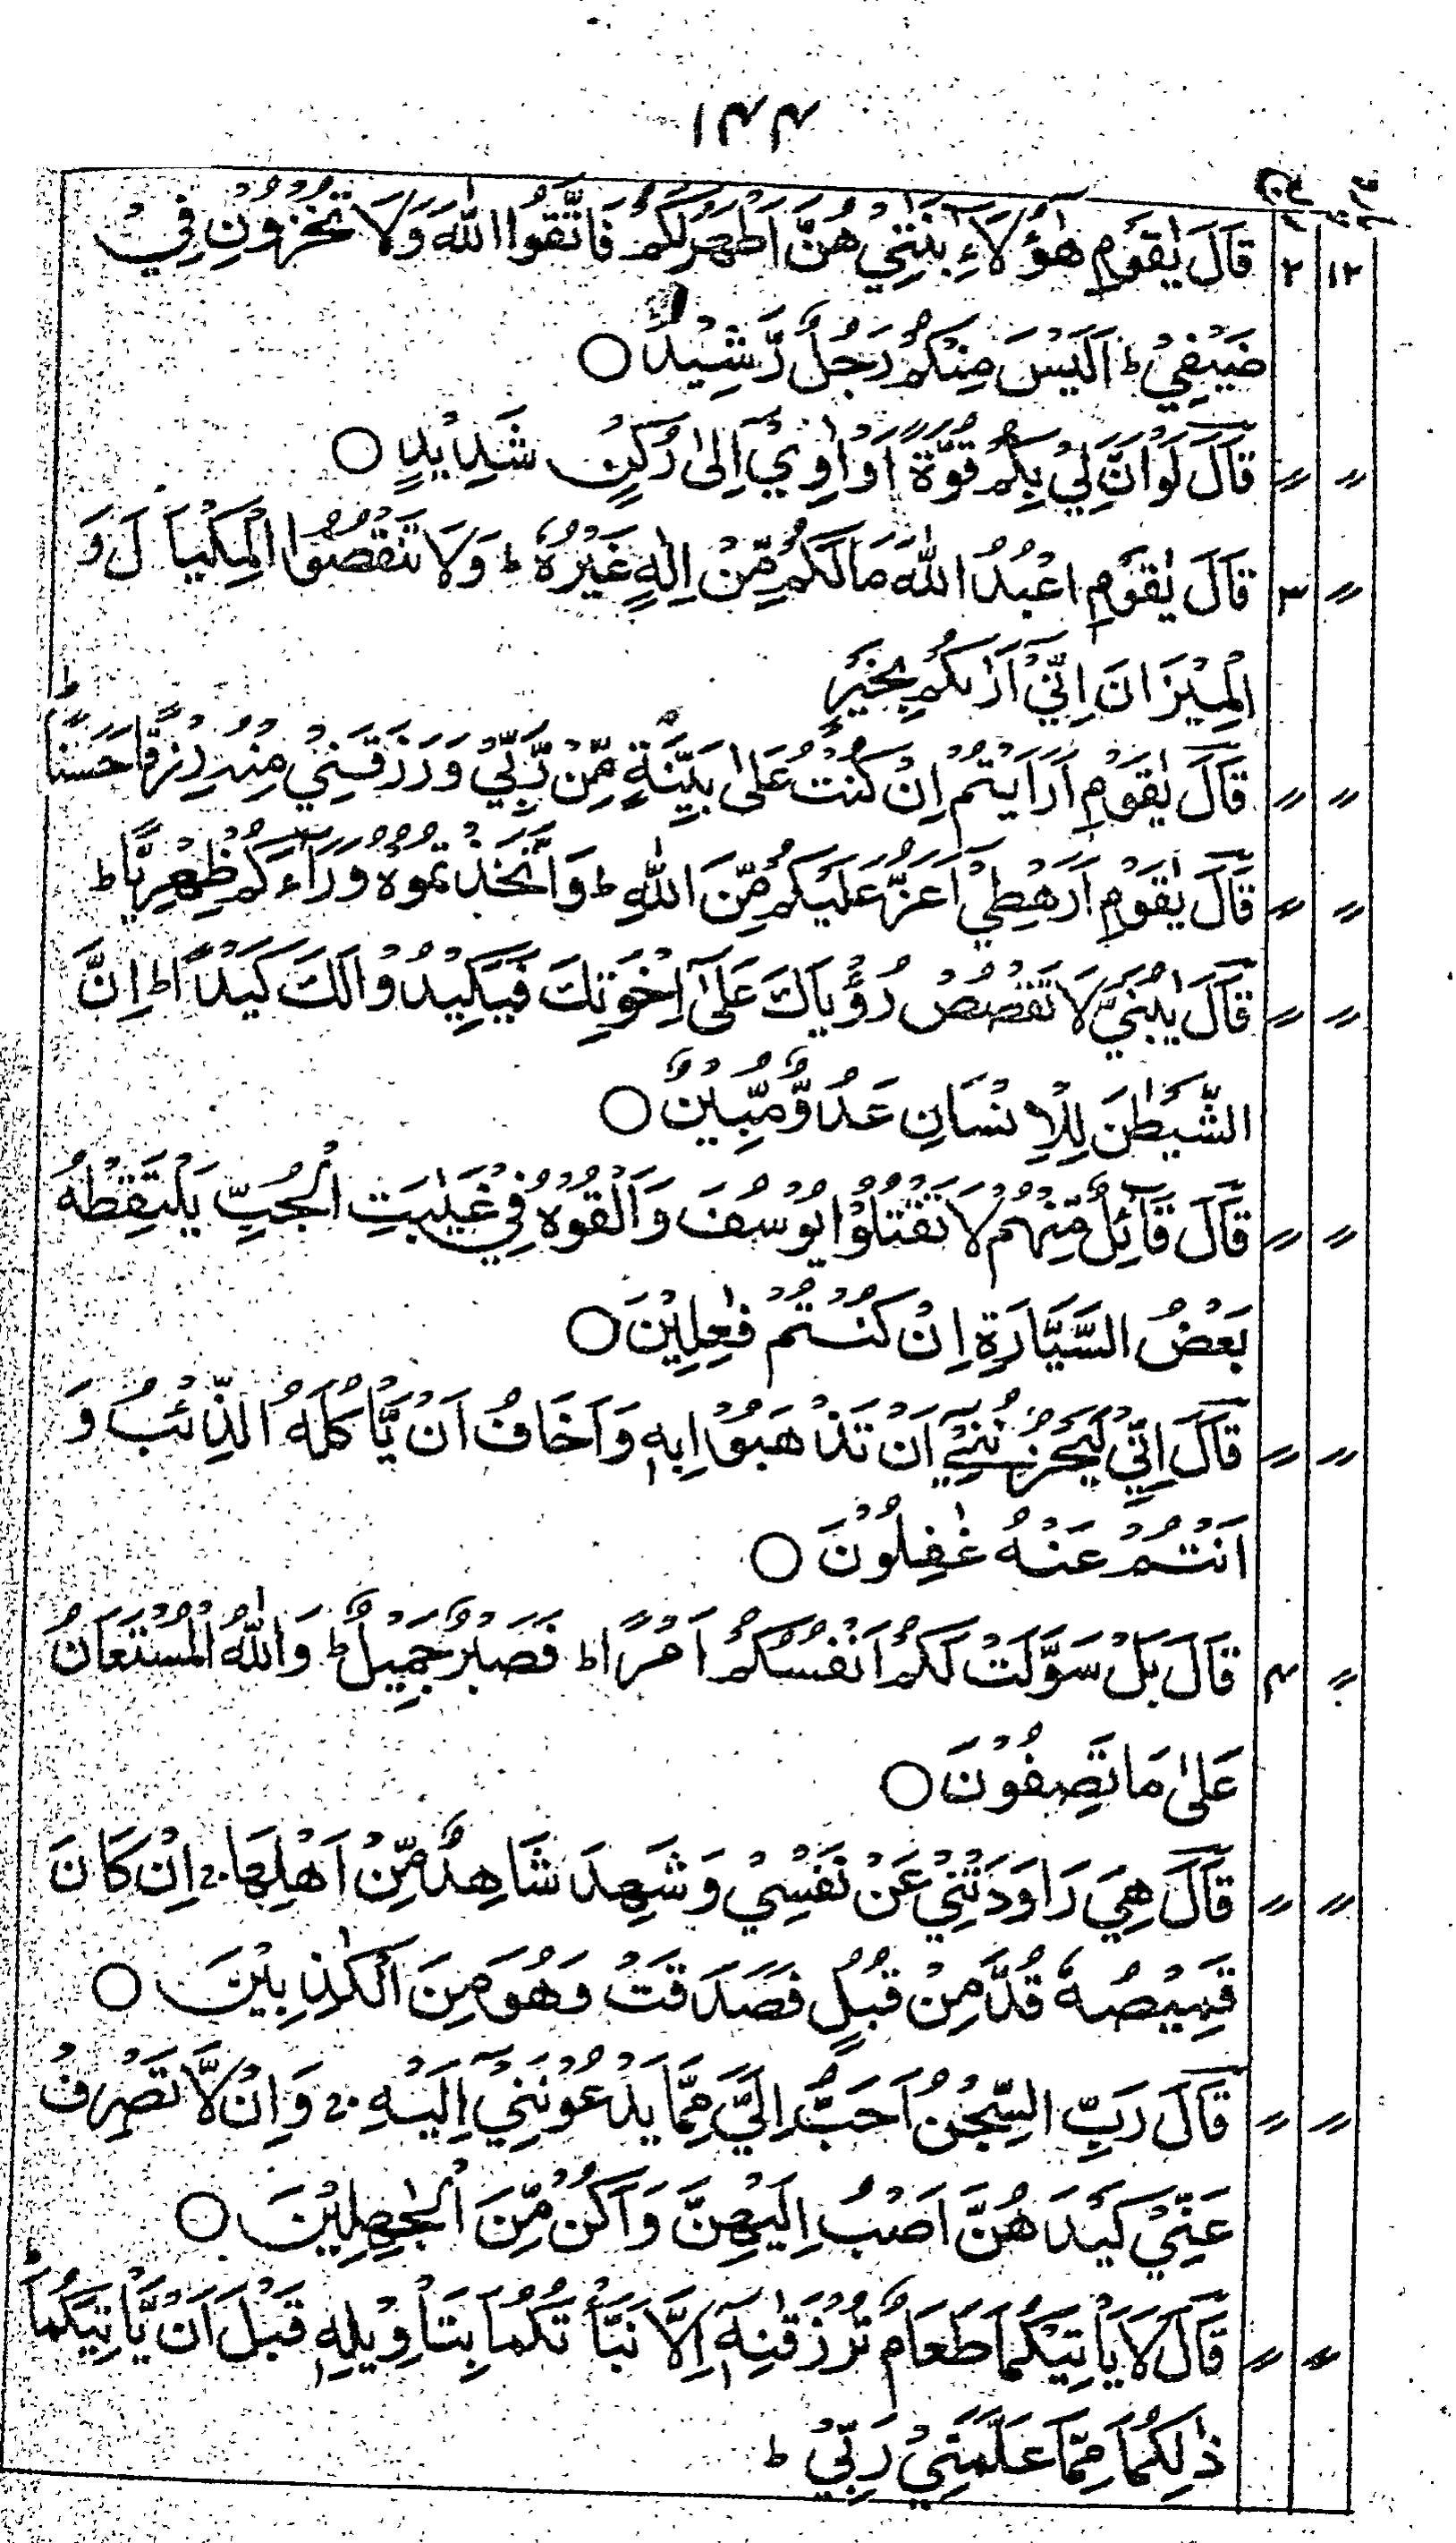 ۱۴۴
۱۲ ۲ قَالَ يٰقَوْمِ هٰۤؤُلَآءِ بَنٰتِيْ هُنَّ اَطْهَرُ لَكُمْ فَاتَّقُوا اللّٰهَ وَلَا تُخْزُوْنِ فِيْ
ضَيْفِيْ ؕ اَلَيْسَ مِنْكُمْ رَجُلٌ رَّشِيْدٌ ○
〃 〃 قَالَ لَوْ اَنَّ لِيْ بِكُمْ قُوَّةً اَوْ اٰوِيْۤ اِلٰى رُكْنٍ شَدِيْدٍ ○
〃 ۳ قَالَ يٰقَوْمِ اعْبُدُوا اللّٰهَ مَا لَكُمْ مِّنْ اِلٰهٍ غَيْرُهٗ ؕ وَلَا تَنْقُصُوا الْمِكْيَالَ وَ
الْمِيْزَانَ اِنِّيْۤ اَرٰىكُمْ بِخَيْرٍ
〃 〃 قَالَ يٰقَوْمِ اَرَاَيْتُمْ اِنْ كُنْتُ عَلٰى بَيِّنَةٍ مِّنْ رَّبِّيْ وَرَزَقَنِيْ مِنْهُ رِزْقًا حَسَنًا ؕ
〃 〃 قَالَ يٰقَوْمِ اَرَهْطِيْۤ اَعَزُّ عَلَيْكُمْ مِّنَ اللّٰهِ ؕ وَاتَّخَذْتُمُوْهُ وَرَآءَكُمْ ظِهْرِيًّا ؕ
〃 〃 قَالَ يٰبُنَيَّ لَا تَقْصُصْ رُؤْيَاكَ عَلٰۤى اِخْوَتِكَ فَيَكِيْدُوْا لَكَ كَيْدًا ؕ اِنَّ
الشَّيْطٰنَ لِلْاِنْسَانِ عَدُوٌّ مُّبِيْنٌ ○
〃 〃 قَالَ قَآئِلٌ مِّنْهُمْ لَا تَقْتُلُوْا يُوْسُفَ وَاَلْقُوْهُ فِيْ غَيٰبَتِ الْجُبِّ يَلْتَقِطْهُ
بَعْضُ السَّيَّارَةِ اِنْ كُنْتُمْ فٰعِلِيْنَ ○
〃 〃 قَالَ اِنِّيْ لَيَحْزُنُنِيْۤ اَنْ تَذْهَبُوْا بِهٖ وَاَخَافُ اَنْ يَّاْكُلَهُ الذِّئْبُ وَ
اَنْتُمْ عَنْهُ غٰفِلُوْنَ ○
〃 ۴ قَالَ بَلْ سَوَّلَتْ لَكُمْ اَنْفُسُكُمْ اَمْرًا ؕ فَصَبْرٌ جَمِيْلٌ ؕ وَاللّٰهُ الْمُسْتَعَانُ
عَلٰى مَا تَصِفُوْنَ ○
〃 〃 قَالَ هِيَ رَاوَدَتْنِيْ عَنْ نَّفْسِيْ وَشَهِدَ شَاهِدٌ مِّنْ اَهْلِهَا ۚ اِنْ كَانَ
قَمِيْصُهٗ قُدَّ مِنْ قُبُلٍ فَصَدَقَتْ وَهُوَ مِنَ الْكٰذِبِيْنَ ○
〃 〃 قَالَ رَبِّ السِّجْنُ اَحَبُّ اِلَيَّ مِمَّا يَدْعُوْنَنِيْۤ اِلَيْهِ ۚ وَاِنْ لَّا تَصْرِفْ
عَنِّيْ كَيْدَهُنَّ اَصْبُ اِلَيْهِنَّ وَاَكُنْ مِّنَ الْجٰهِلِيْنَ ○
〃 〃 قَالَ لَا يَاْتِيْكُمَا طَعَامٌ تُرْزَقٰنِهٖۤ اِلَّا نَبَّاْتُكُمَا بِتَاْوِيْلِهٖ قَبْلَ اَنْ يَّاْتِيَكُمَا ؕ
ذٰلِكُمَا مِمَّا عَلَّمَنِيْ رَبِّيْ ؕ